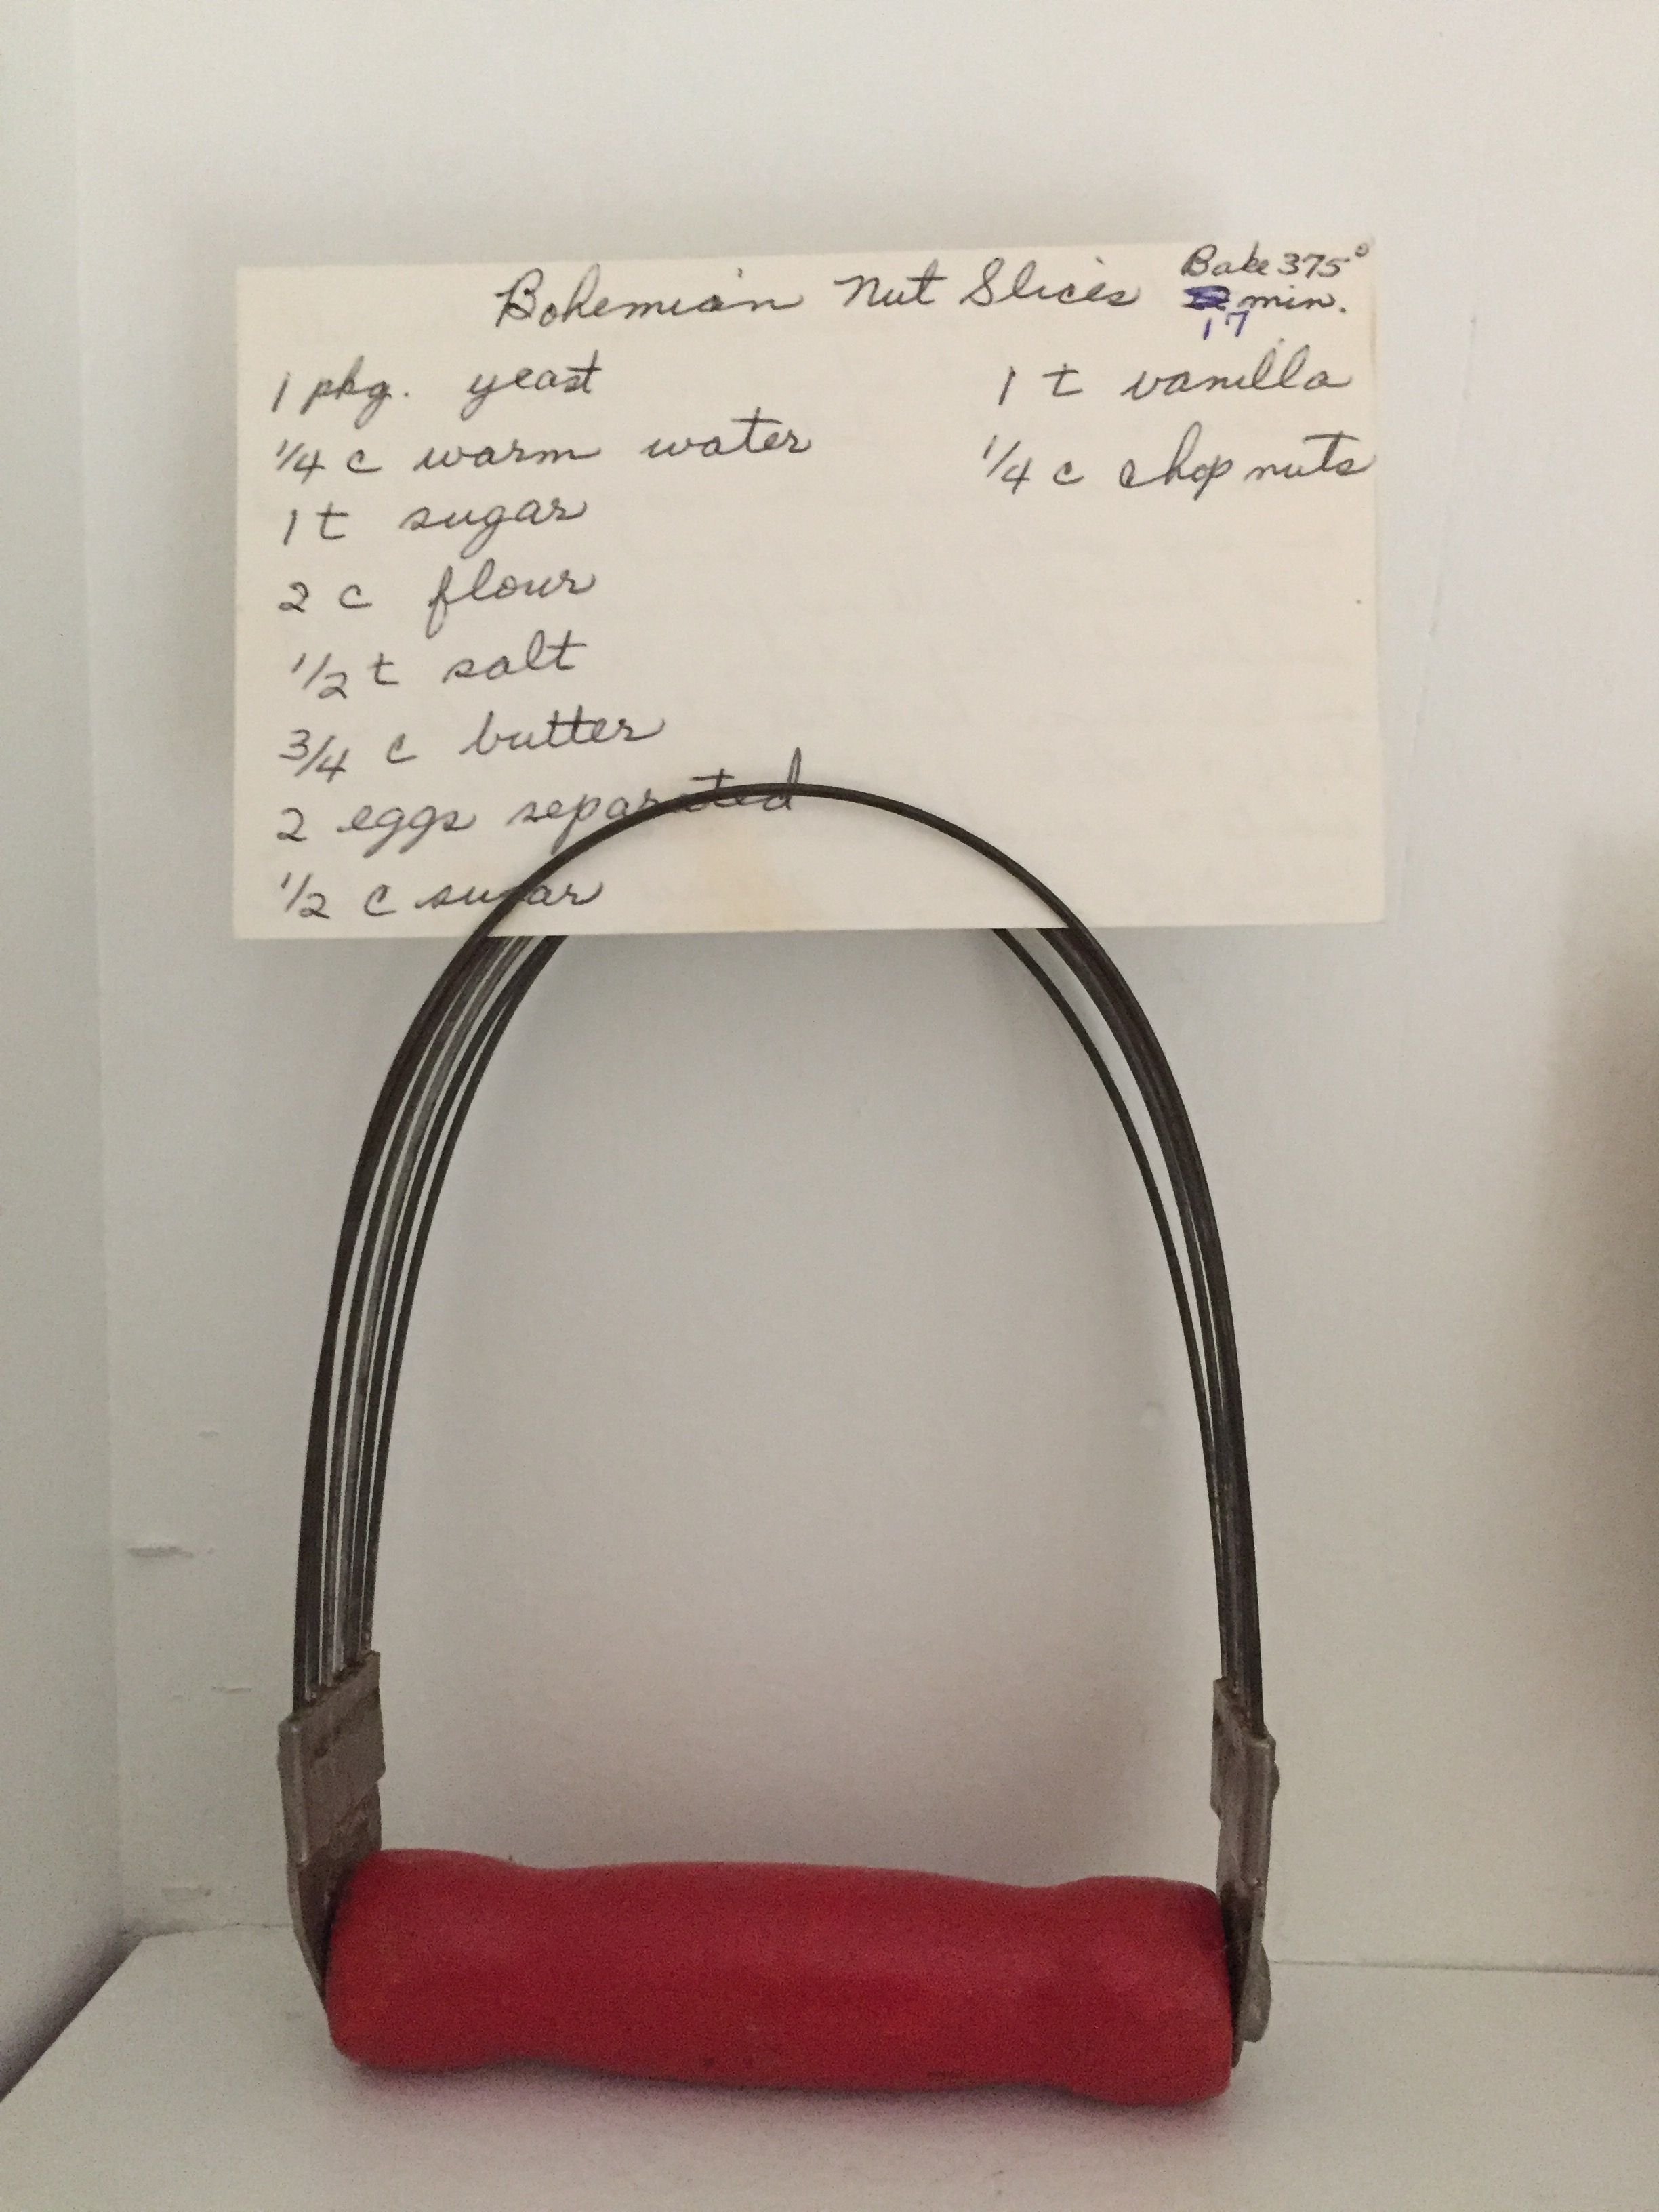 Bohemian Nut Slices
Bake 375°
min.
17
1 pkg. yeast
1/4 c warm water
1 t sugar
2 c flour
1/2 t salt
3/4 c butter
2 eggs separated
1/2 c sugar
1 t vanilla
1/4 c chop nuts